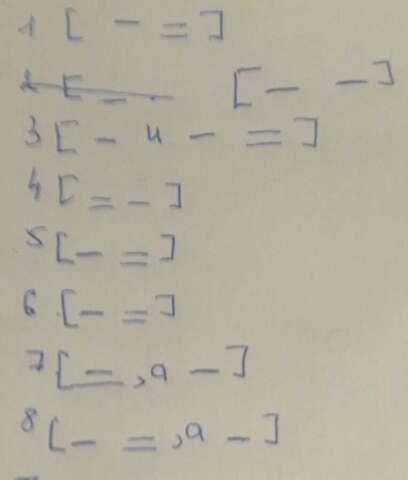 1 [ — = ]
2 [ — — [ — — ]
3 [ — и — = ]
4 [ = — ]
5 [ — = ]
6 [ — = ]
7 [ = , а — ]
8 [ — = , а — ]